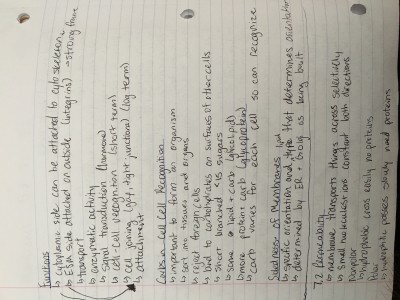 Functions
↳ cytoplasmic side can be attached to cytoskeleton
↳ ECM side attached on outside (integrins) → strong frame
↳ transport
↳ enzymatic activity
↳ signal transduction (hormone)
↳ cell-cell recognition (short term)
↳ cell joining (gap, tight junctions) (long term)
↳ attachment
Carbs in Cell Cell Recognition
↳ important to form an organism
↳ sort into tissues and organs
↳ reject foreign cells
↳ bind to carbohydrates on surfaces of other cells
↳ short branched <15 sugars
↳ some = lipid + carb (glycolipid)
↳ more protein + carb (glycoprotein)
↳ carb varies for each cell so can recognize
Sidedness of Membranes
↳ specific orientation and type that determines orientation
↳ determined by ER + Golgi as being built
7.2 Permeability
↳ membrane transports things across selectively
↳ small molecules + ions constant both directions
nonpolar
↳ hydrophobic cross easily no proteins
Polar
↳ hydrophilic passes slowly need proteins